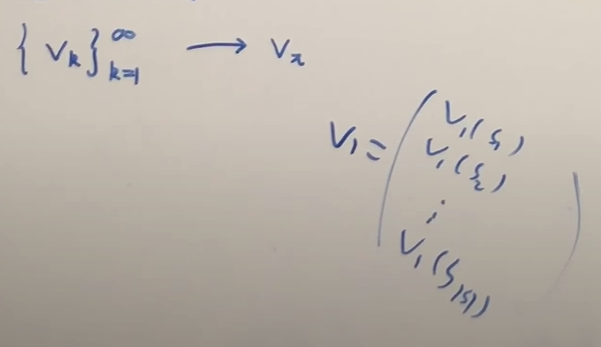 { V_k }_{k=1}^∞ → V_π
V_1 = ( V_1(s_1)
V_1(s_2)
⋮
V_1(s_{|S|}) )